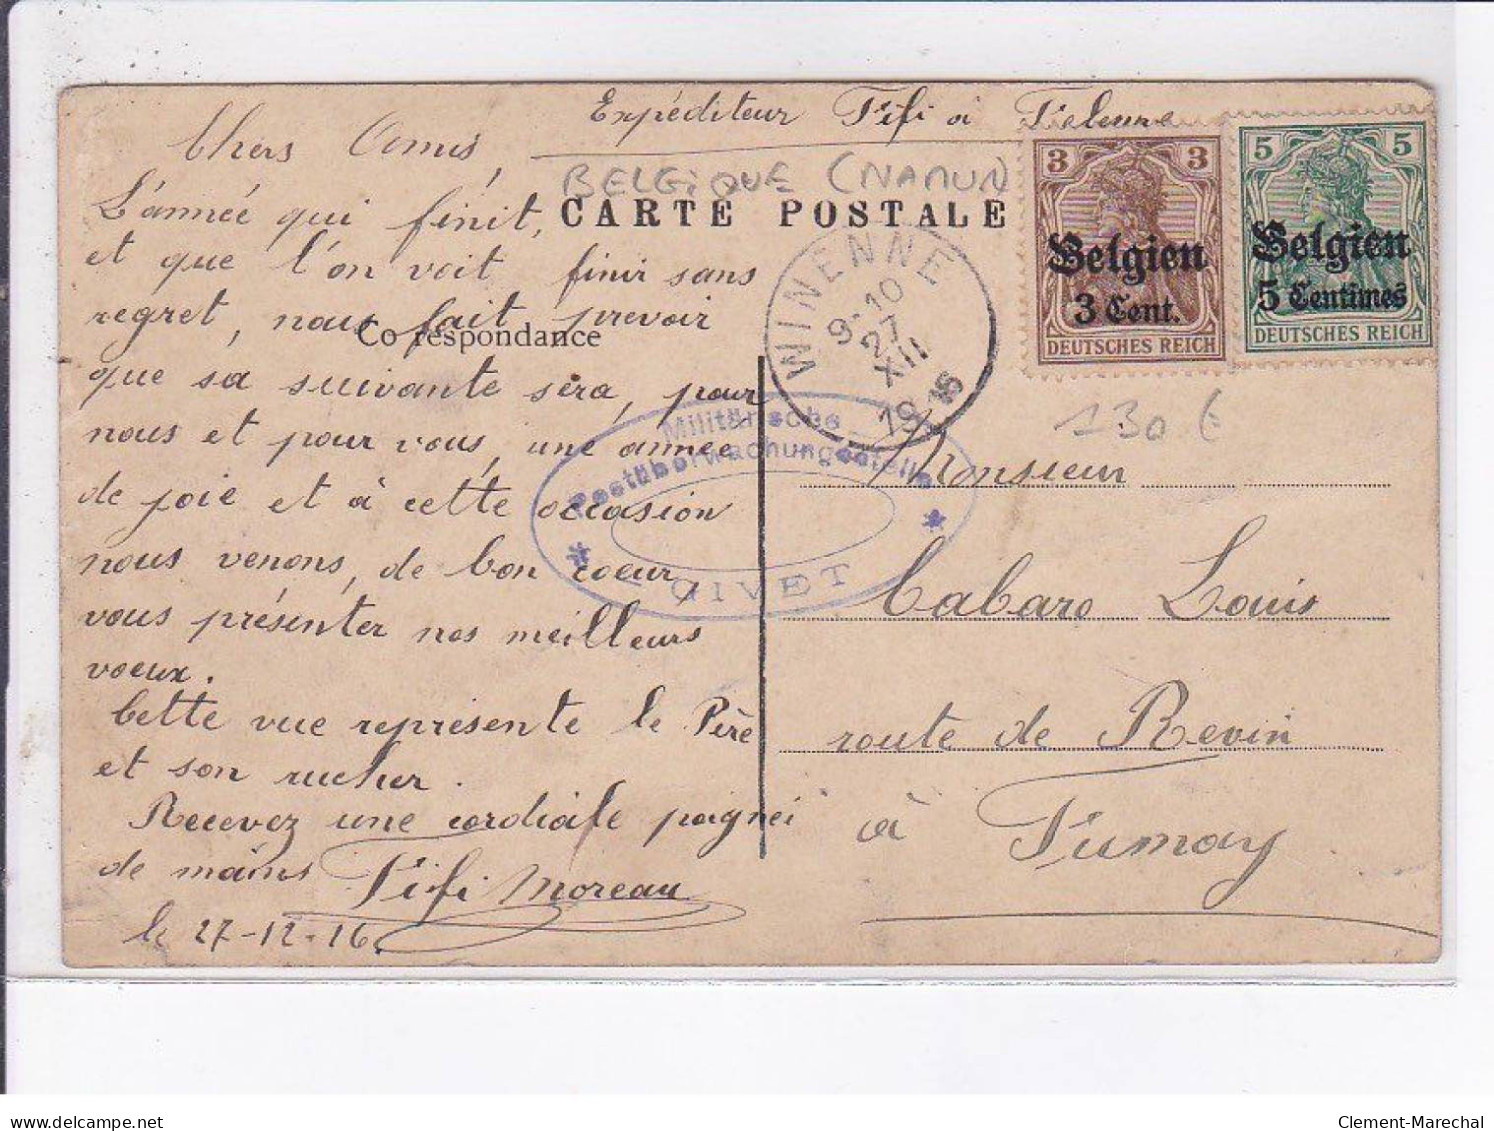 Expéditeur Fifi à Felenne
BELGIQUE (NAMUR)
CARTE POSTALE
Chers Amis,
L'année qui finit,
et que l'on voit finir sans
regret, nous fait prevoir
Co respondance
que sa suivante sera, pour
nous et pour vous, une année
de joie et à cette occasion
nous venons, de bon coeur,
vous présenter nos meilleurs
voeux.
Cette vue represente le Père
et son rucher.
Recevez une cordiale poignée
de mains Fifi Moreau
le 27-12-16.
3 3
Belgien
3 Cent.
DEUTSCHES REICH
5 5
Belgien
5 Centimes
DEUTSCHES REICH
WINENNE
9-10
27
XII
19
130 €
Militärische
Postüberwachungsstelle
* GIVET *
Monsieur
Cabaro Louis
route de Revin
à Fumay
Clement-Marechal
delcampe.net